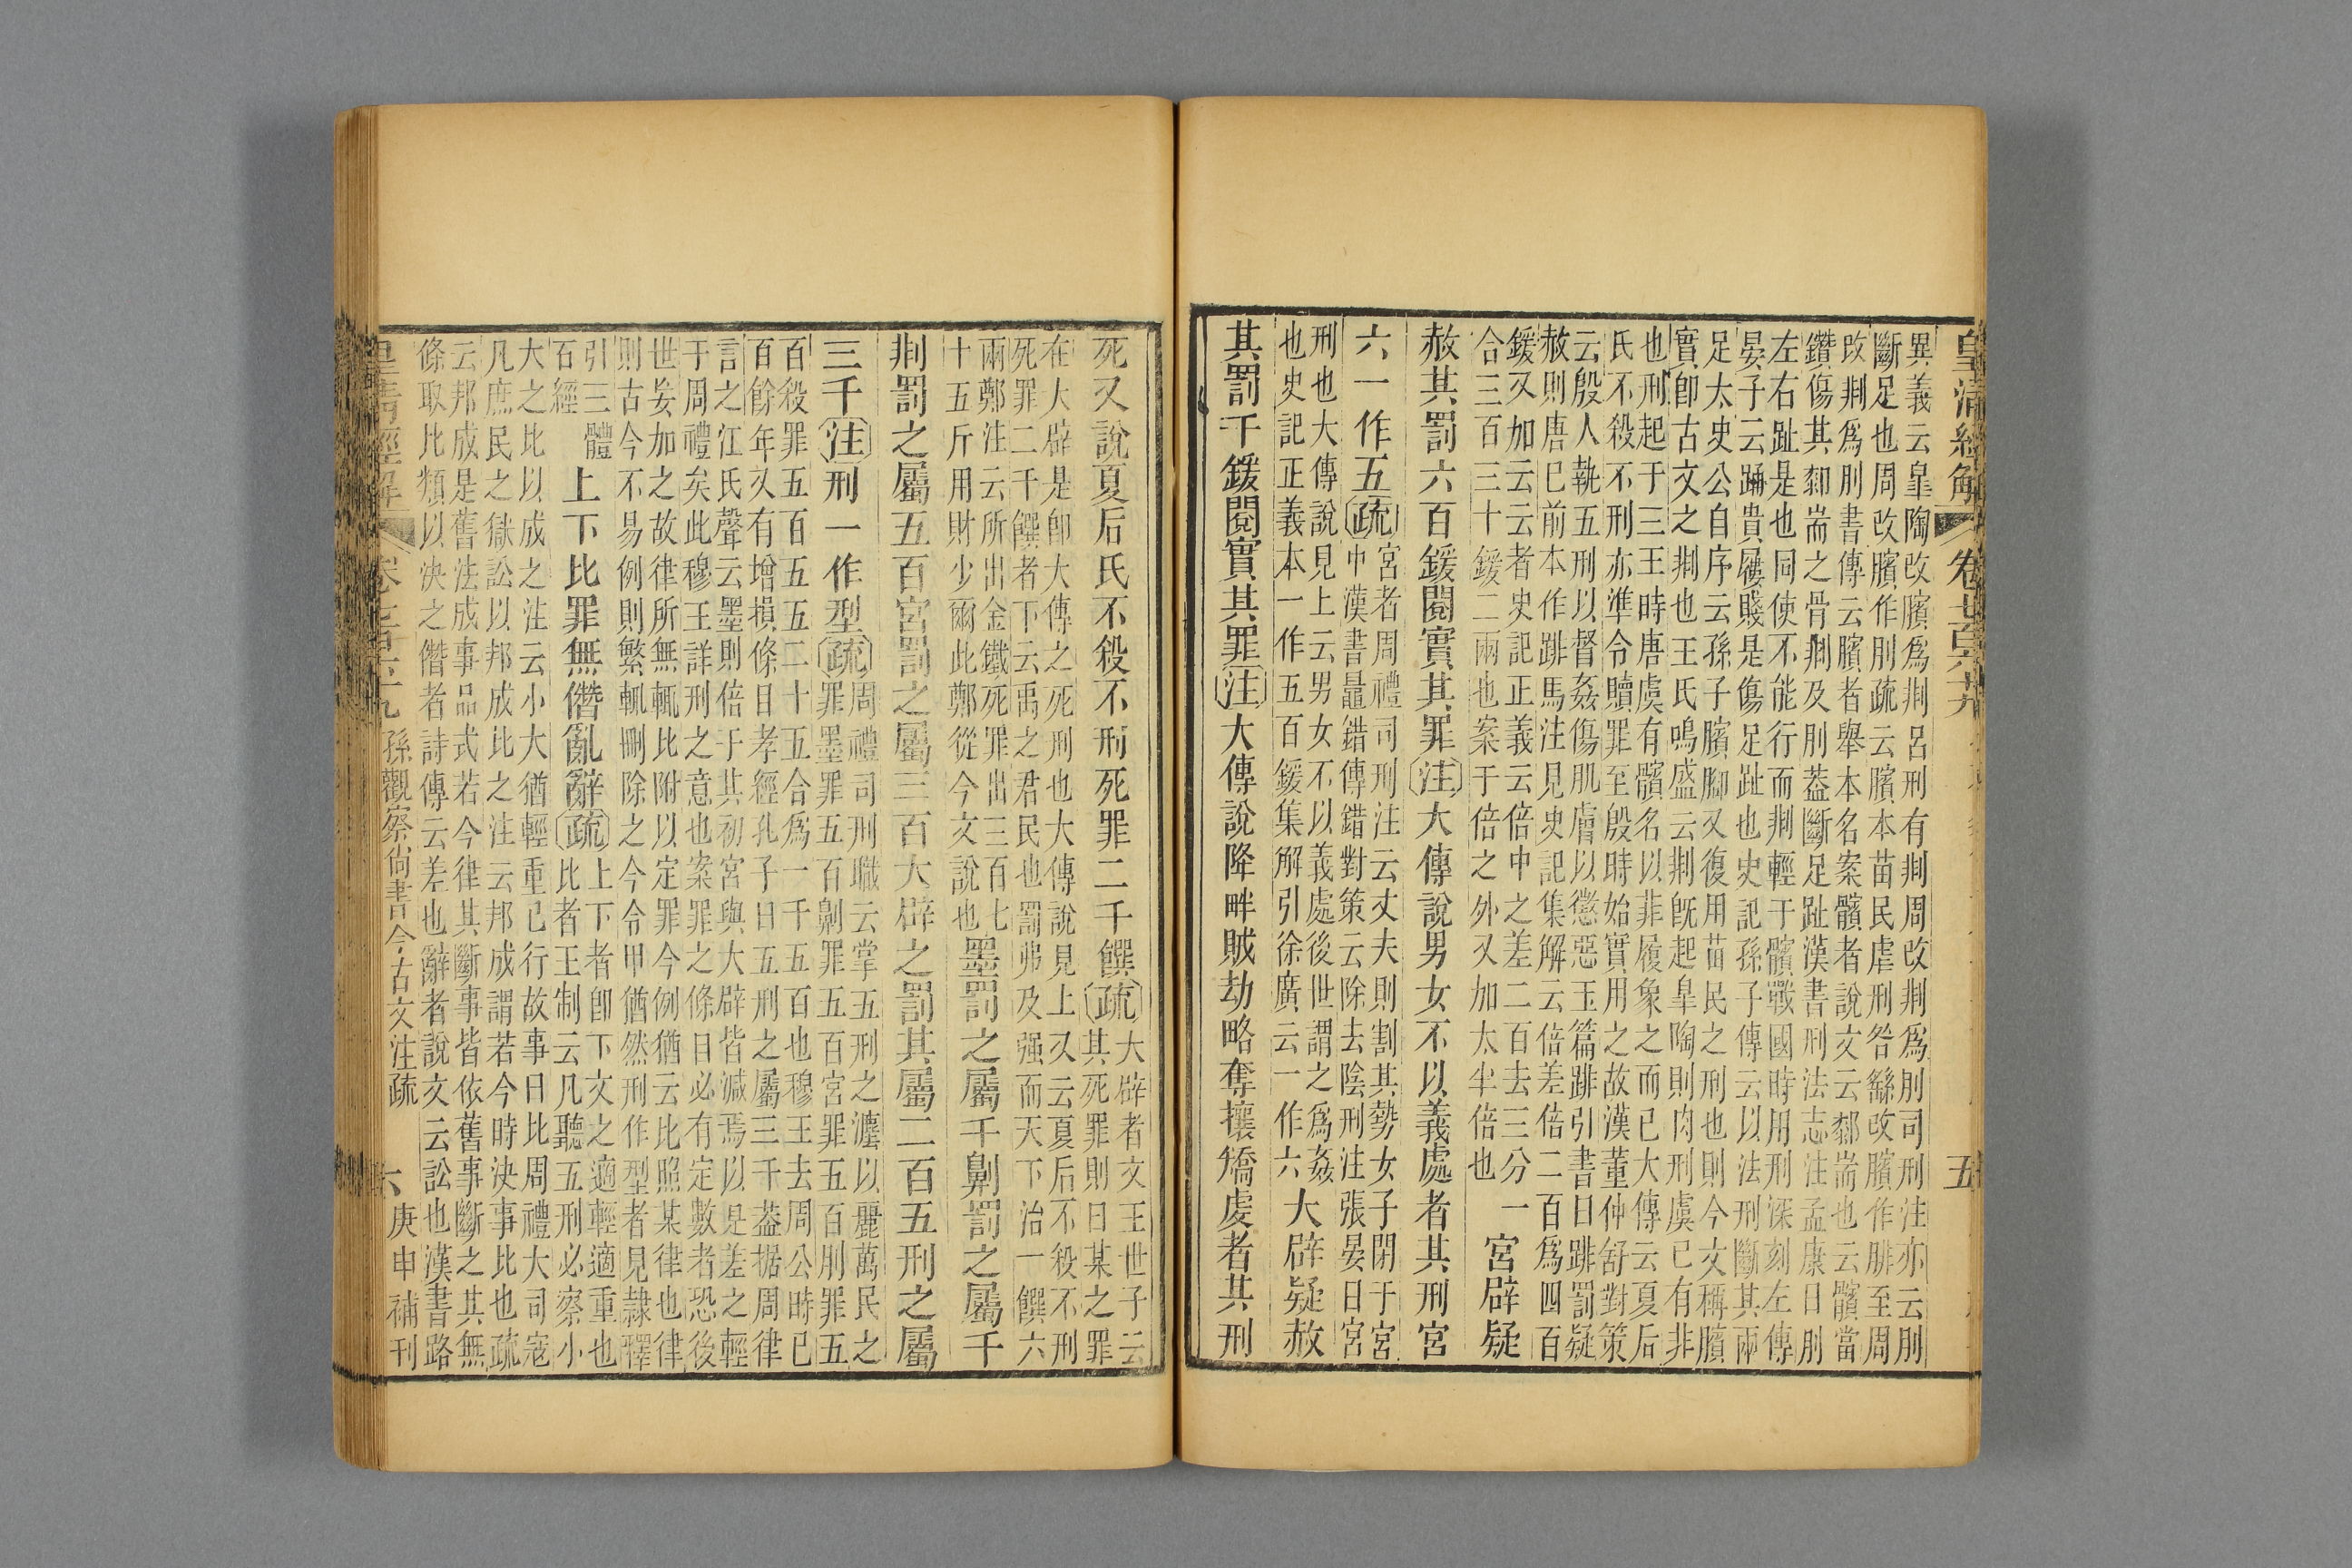 皇清經解
卷七百六十九
五
異義云皐陶改臏爲剕呂刑有剕周改剕爲刖司刑注亦云刖
斷足也周改臏作刖疏云臏本苗民虐刑咎繇改臏作腓至周
改剕爲刖書傳云臏者舉本名案髕者說文云厀耑也云髕當
鑽傷其厀耑之骨剕及刖葢斷足趾漢書刑法志注孟康曰刖
左右趾是也同使不能行而剕輕于髕戰國時用刑深刻左傳
晏子云踊貴屨賤是傷足趾也史記孫子傳云以法刑斷其兩
足太史公自序云孫子臏腳又復用苗民之刑也則今文稱臏
實卽古文之剕也王氏鳴盛云剕旣起皐陶則肉刑虞已有非
也刑起于三王時唐虞有髕名以非履象之而已大傳云夏后
氏不殺不刑亦準令贖罪至殷時始實用之故漢董仲舒對策
云殷人執五刑以督姦傷肌膚以懲惡玉篇跳引書曰跳罰疑
赦則唐已前本作跳馬注見史記集解云倍差倍二百爲四百
鍰又加云云者史記正義云倍中之差二百去三分一
合三百三十鍰二兩也案于倍之外又加太半倍也
宮辟疑
赦其罰六百鍰閱實其罪注大傳說男女不以義處者其刑宮
六一作五疏
宮者周禮司刑注云丈夫則割其勢女子閉于宮
中漢書鼂錯傳錯對策云除去陰刑注張晏曰宮
刑也大傳說見上云男女不以義處後世謂之爲姦
也史記正義本一作五百鍰集解引徐廣云一作六
大辟疑赦
其罰千鍰閱實其罪注大傳說降畔賊劫略奪攘矯虔者其刑
死又說夏后氏不殺不刑死罪二千饌疏
大辟者文王世子云
其死罪則曰某之罪
在大辟是卽大傳之死刑也大傳說見上又云夏后不殺不刑
死罪二千饌者下云禹之君民也罰弗及强而天下治一饌六
兩鄭注云所出金鐵死罪出三百七
十五斤用財少爾此鄭從今文說也
墨罰之屬千劓罰之屬千
剕罰之屬五百宮罰之屬三百大辟之罰其屬二百五刑之屬
三千注刑一作型疏
周禮司刑職云掌五刑之灋以麗萬民之
罪墨罪五百劓罪五百宮罪五百刖罪五
百殺罪五百五五二十五合爲一千五百也穆王去周公時已
百餘年久有增損條目孝經孔子曰五刑之屬三千葢据周律
言之江氏聲云墨則倍于其初宮與大辟皆減焉以是差之輕
于周禮矣此穆王詳刑之意也案罪之條目必有定數者恐後
世妄加之故律所無輒比附以定罪今例猶云比照某律也律
則古今不易例則繁輒刪除之今令甲猶然刑作型者見隸釋
引三體
石經
上下比罪無僭亂辭疏
上下者卽下文之適輕適重也
比者王制云凡聽五刑必察小
大之比以成之注云小大猶輕重已行故事曰比周禮大司寇
凡庶民之獄訟以邦成比之注云邦成謂若今時決事比也疏
云邦成是舊法成事品式若今律其斷事皆依舊事斷之其無
條取比類以決之僭者詩傳云差也辭者說文云訟也漢書路
皇清經解
卷七百六十九
孫觀察尙書今古文注疏
六
庚申補刊